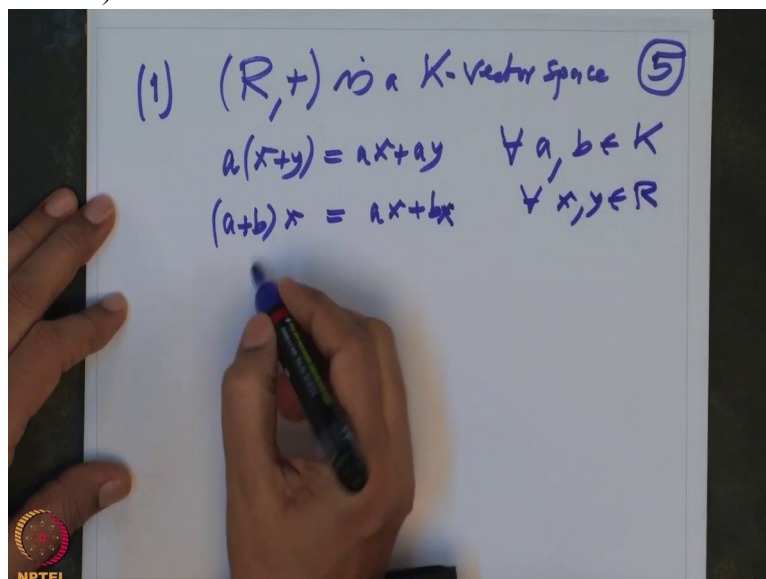 (1) (R,+) is a K-vector space ⑤
a(x+y) = ax+ay ∀ a, b ∈ K
(a+b)x = ax+bx ∀ x,y ∈ R
NPTEL